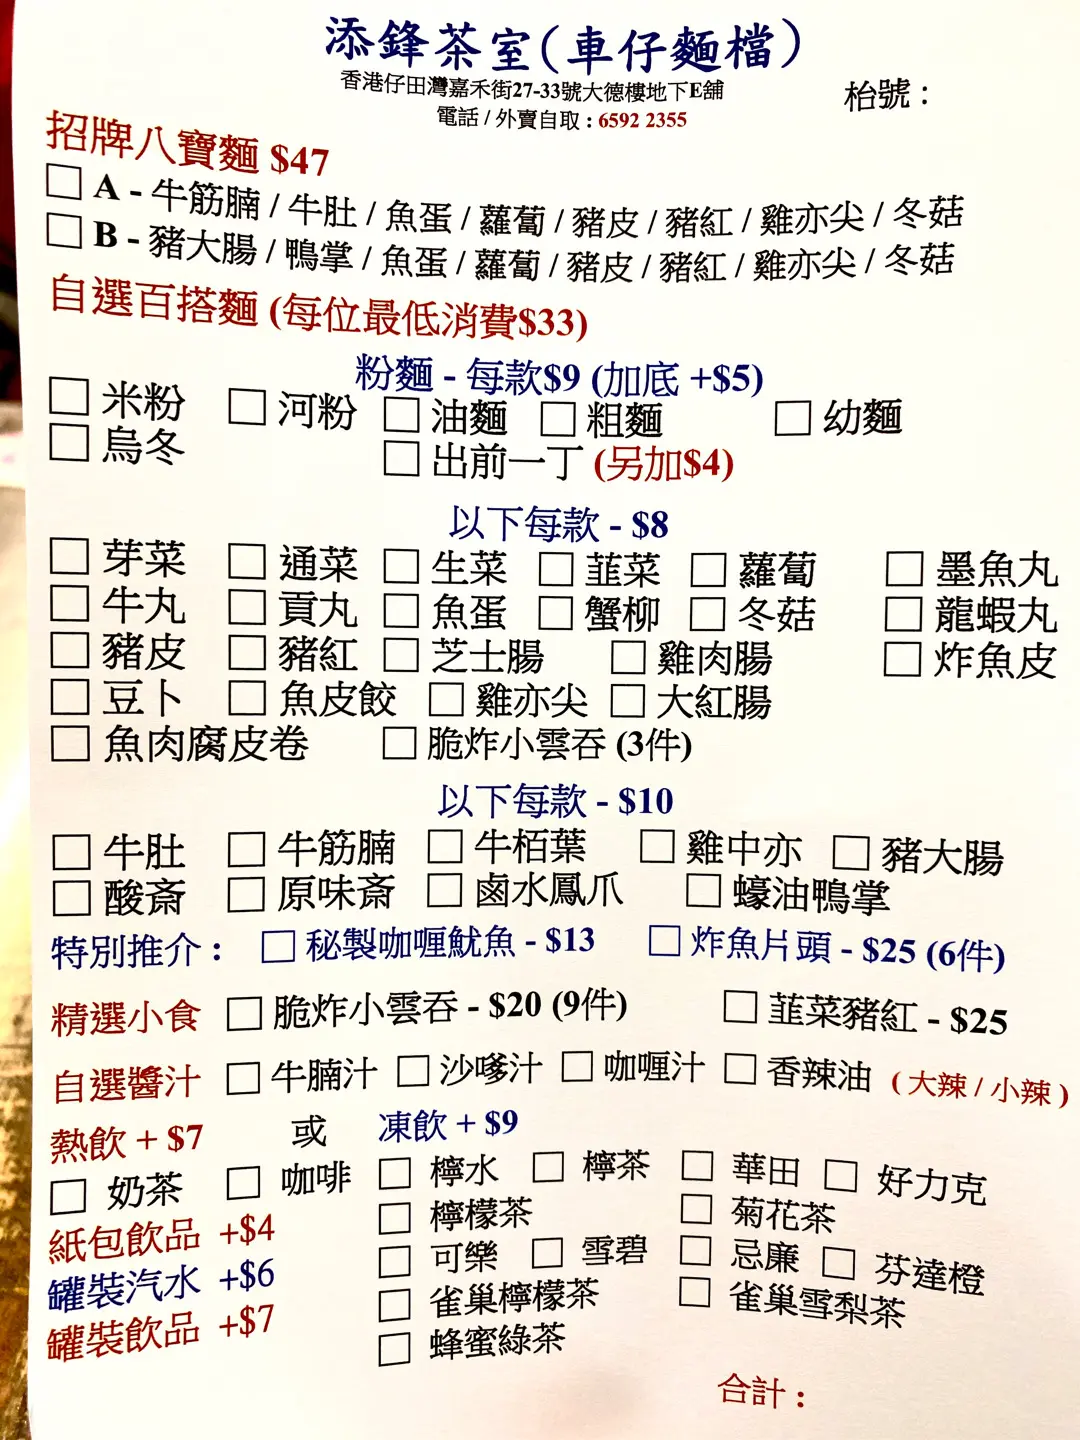 添鋒茶室(車仔麵檔)
香港仔田灣嘉禾街27-33號大德樓地下E舖
電話 / 外賣自取 : 6592 2355
枱號 :
招牌八寶麵 $47
□ A - 牛筋腩 / 牛肚 / 魚蛋 / 蘿蔔 / 豬皮 / 豬紅 / 雞亦尖 / 冬菇
□ B - 豬大腸 / 鴨掌 / 魚蛋 / 蘿蔔 / 豬皮 / 豬紅 / 雞亦尖 / 冬菇
自選百搭麵 (每位最低消費$33)
粉麵 - 每款$9 (加底 +$5)
□ 米粉 □ 河粉 □ 油麵 □ 粗麵 □ 幼麵
□ 烏冬 □ 出前一丁 (另加$4)
以下每款 - $8
□ 芽菜 □ 通菜 □ 生菜 □ 韮菜 □ 蘿蔔 □ 墨魚丸
□ 牛丸 □ 貢丸 □ 魚蛋 □ 蟹柳 □ 冬菇 □ 龍蝦丸
□ 豬皮 □ 豬紅 □ 芝士腸 □ 雞肉腸 □ 炸魚皮
□ 豆卜 □ 魚皮餃 □ 雞亦尖 □ 大紅腸
□ 魚肉腐皮卷 □ 脆炸小雲吞 (3件)
以下每款 - $10
□ 牛肚 □ 牛筋腩 □ 牛栢葉 □ 雞中亦 □ 豬大腸
□ 酸斎 □ 原味斎 □ 鹵水鳳爪 □ 蠔油鴨掌
特別推介 : □ 秘製咖喱魷魚 - $13 □ 炸魚片頭 - $25 (6件)
精選小食 □ 脆炸小雲吞 - $20 (9件) □ 韮菜豬紅 - $25
自選醬汁 □ 牛腩汁 □ 沙嗲汁 □ 咖喱汁 □ 香辣油 ( 大辣 / 小辣 )
熱飲 + $7 或 凍飲 + $9
□ 奶茶 □ 咖啡 □ 檸水 □ 檸茶 □ 華田 □ 好力克
紙包飲品 +$4 □ 檸檬茶 □ 菊花茶
罐裝汽水 +$6 □ 可樂 □ 雪碧 □ 忌廉 □ 芬達橙
罐裝飲品 +$7 □ 雀巢檸檬茶 □ 雀巢雪梨茶
□ 蜂蜜綠茶
合計 :